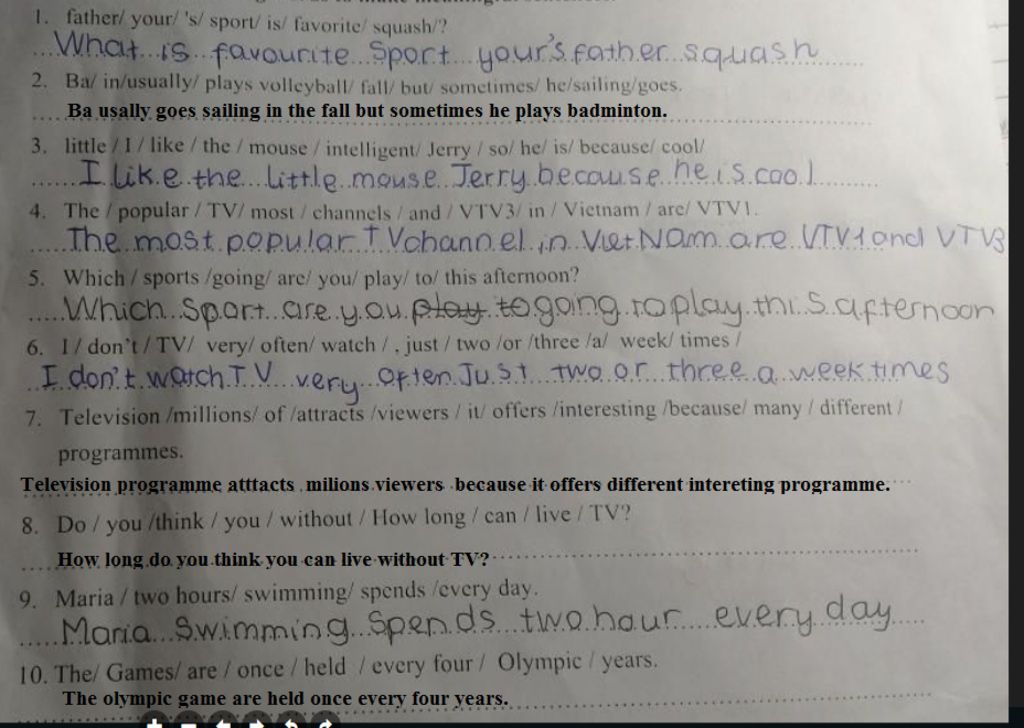 1. father/ your/ 's/ sport/ is/ favorite/ squash/?
What is favourite Sport your's father squash
2. Ba/ in/usually/ plays volleyball/ fall/ but/ sometimes/ he/sailing/goes.
Ba usally goes sailing in the fall but sometimes he plays badminton.
3. little / I / like / the / mouse / intelligent/ Jerry / so/ he/ is/ because/ cool/
I like the little mouse Jerry because he is cool
4. The / popular / TV/ most / channels / and / VTV3/ in / Vietnam / are/ VTV1.
The most popular TV channel in Viet Nam are VTV1 and VTV3
5. Which / sports /going/ are/ you/ play/ to/ this afternoon?
Which Sport are you play to going to play this afternoon
6. I / don't / TV/ very/ often/ watch / , just / two /or /three /a/ week/ times /
I don't watch TV very often Just two or three a week times
7. Television /millions/ of /attracts /viewers / it/ offers /interesting /because/ many / different /
programmes.
Television programme atttacts milions viewers because it offers different intereting programme.
8. Do / you /think / you / without / How long / can / live / TV?
How long do you think you can live without TV?
9. Maria / two hours/ swimming/ spends /every day.
Maria Swimming Spends two hour every day
10. The/ Games/ are / once / held / every four / Olympic / years.
The olympic game are held once every four years.